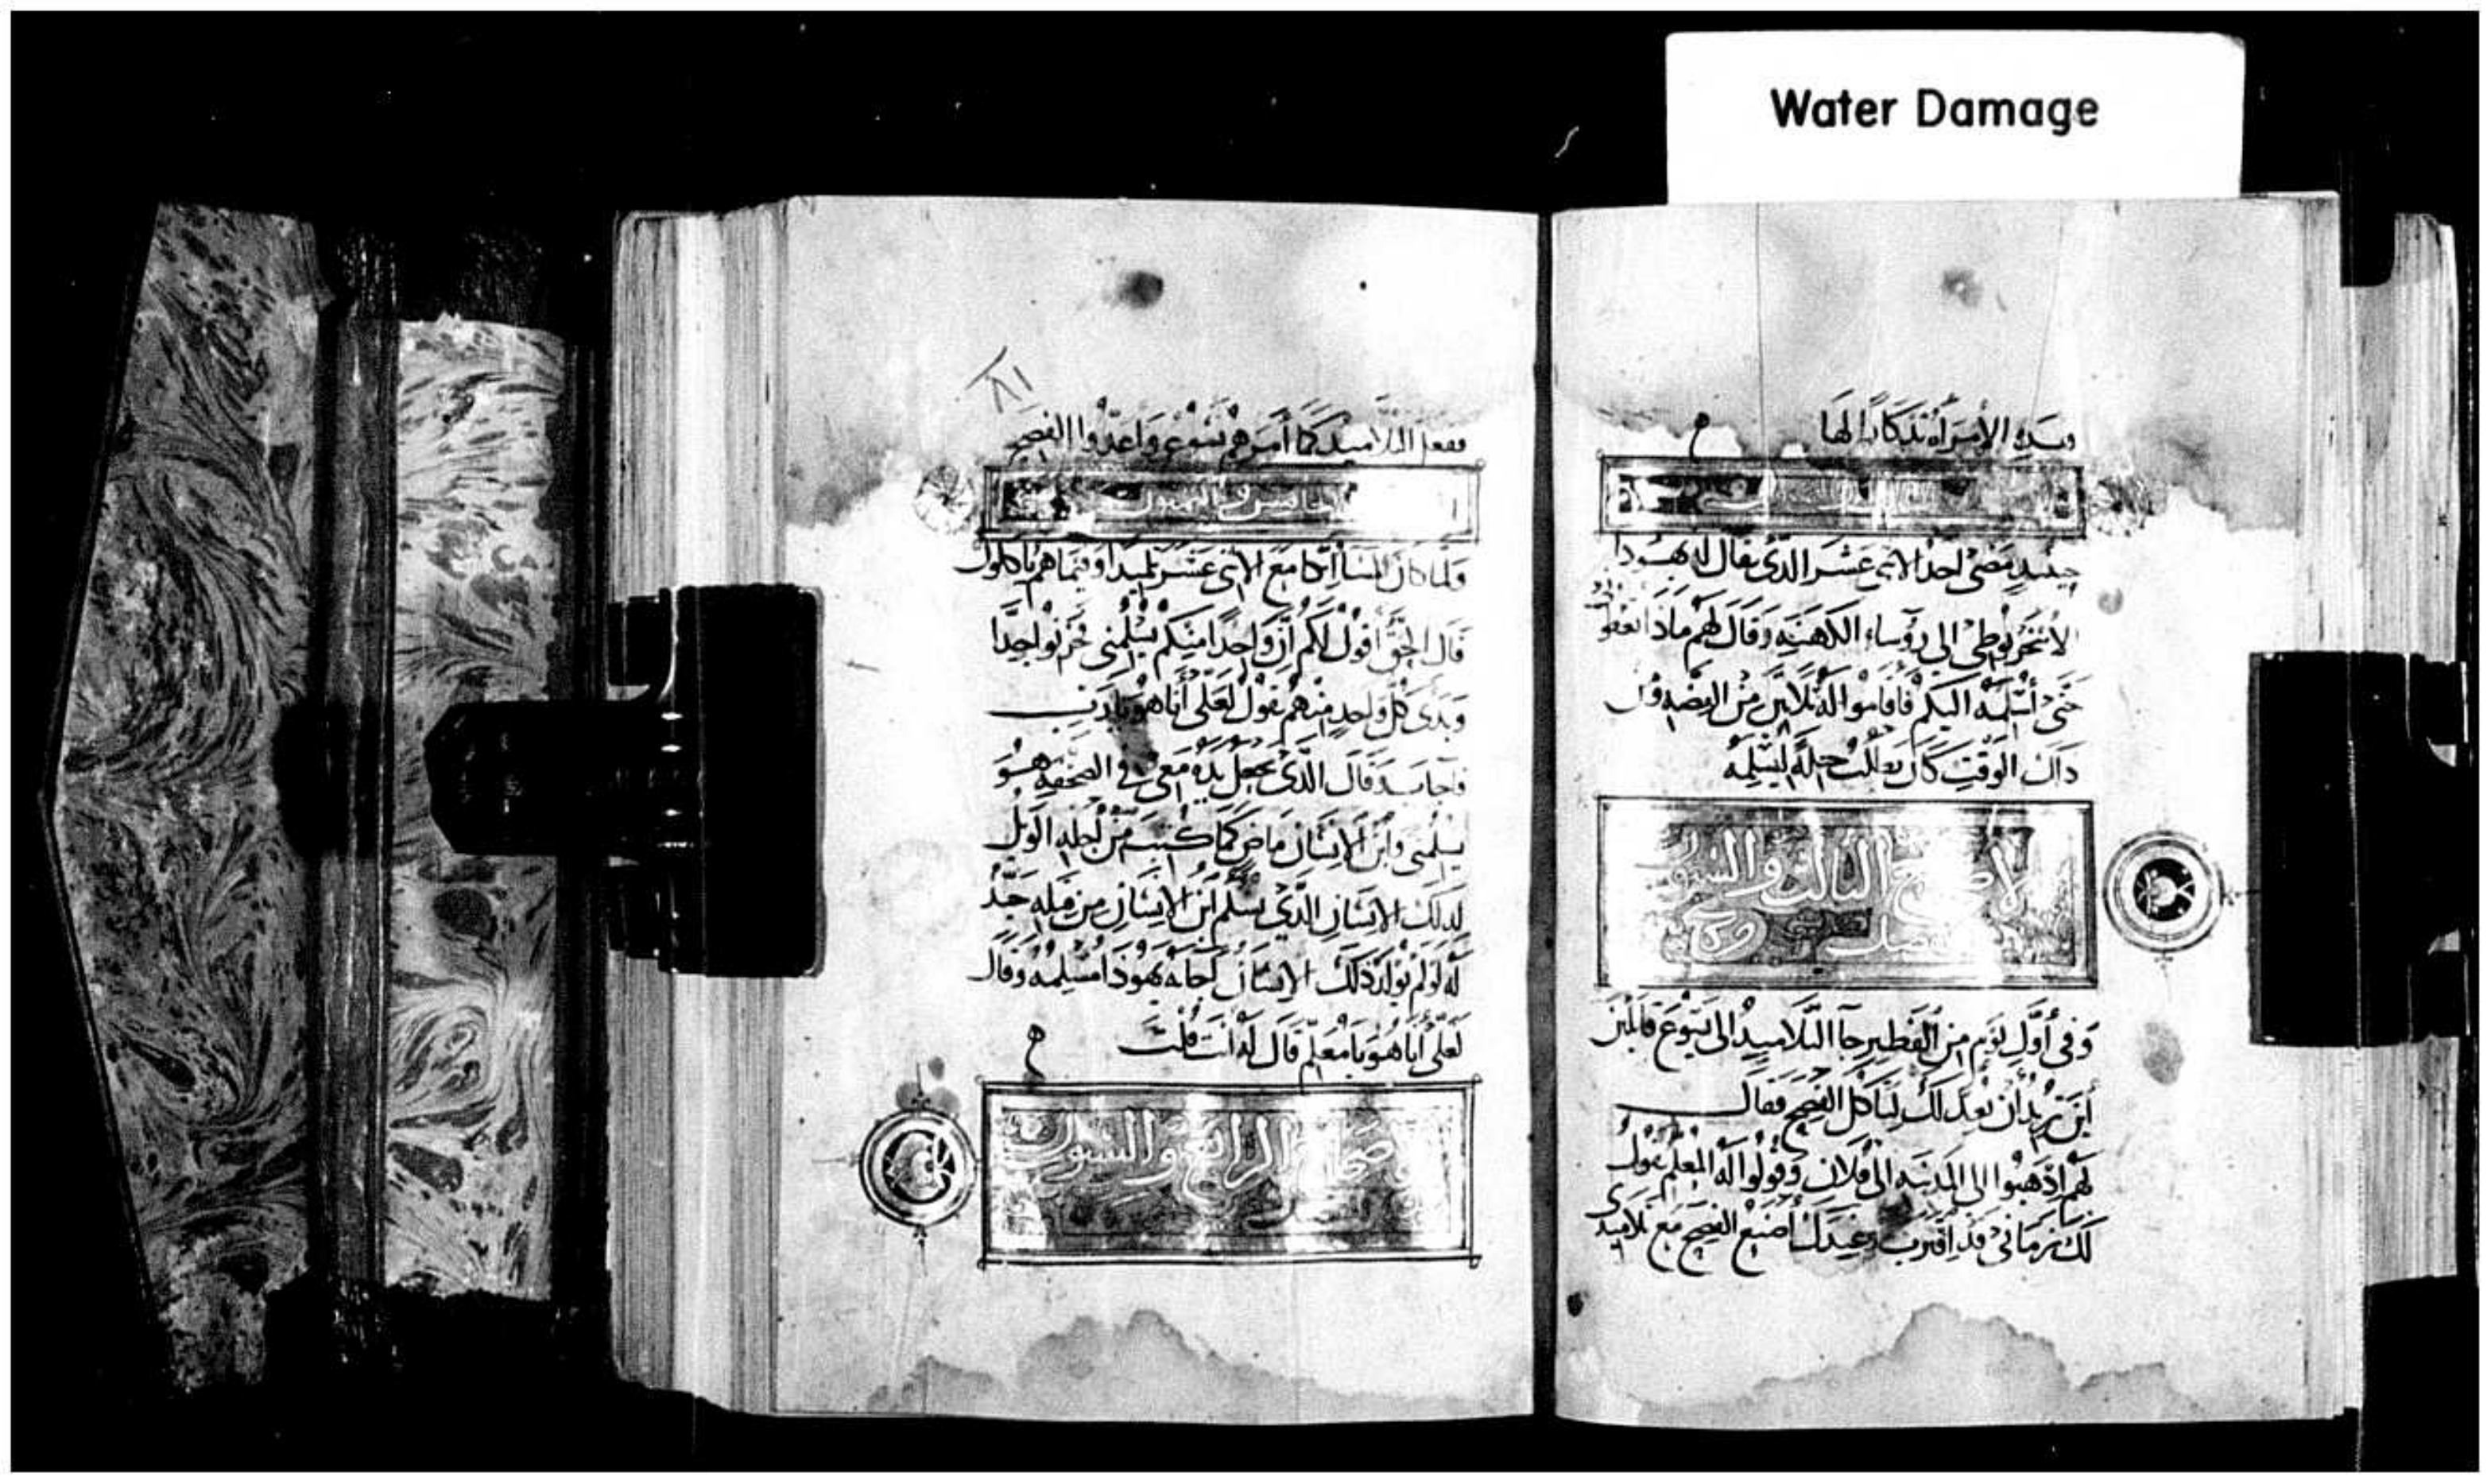 Water Damage
وهده الامرأة تذكارا لها
حينيد مضى احد الاثنى عشر الدى يقال له يهودا
الاسخريوطى الى رؤساء الكهنه وقال لهم ماذا تعطونى
حتى أسلمه اليكم فاقاموا له ثلاثين من الفضه ومن
داك الوقت كان يطلب حيلة ليسلمه
الاصحاح الثالث والستون
وفى أول يوم من الفطير جآ التلاميد الى يسوع قايلين
أين تريد أن نعد لك لتاكل الفصح فقال
لهم اذهبوا الى المدينه الى فلان وقولوا له المعلم يقول
لك زمانى قد اقترب وعندك أصنع الفصح مع تلاميدى
١٨١
ففعل التلاميد كما أمرهم يسوع واعدوا الفصح
الخامس والتسعون
ولما كان المسا اتكا مع الاثنى عشر تلميدا وفيما هم ياكلون
قال الحق أقول لكم ان واحدا منكم يسلمنى فحزنوا جدا
وبدى كل واحد منهم يقول لعلى أنا هو يارب
فاجاب وقال الدى يجعل يده معى فى الصحفه هو
يسلمنى وابن الانسان ماض كما كتب من أجله الويل
لدلك الانسان الدى يسلم ابن الانسان من قبله جيد
له لو لم يولد دلك الانسان أجابه يهودا مسلمه وقال
لعلى أنا هو يا معلم قال له أنت قلت
الاصحاح الرابع والستون